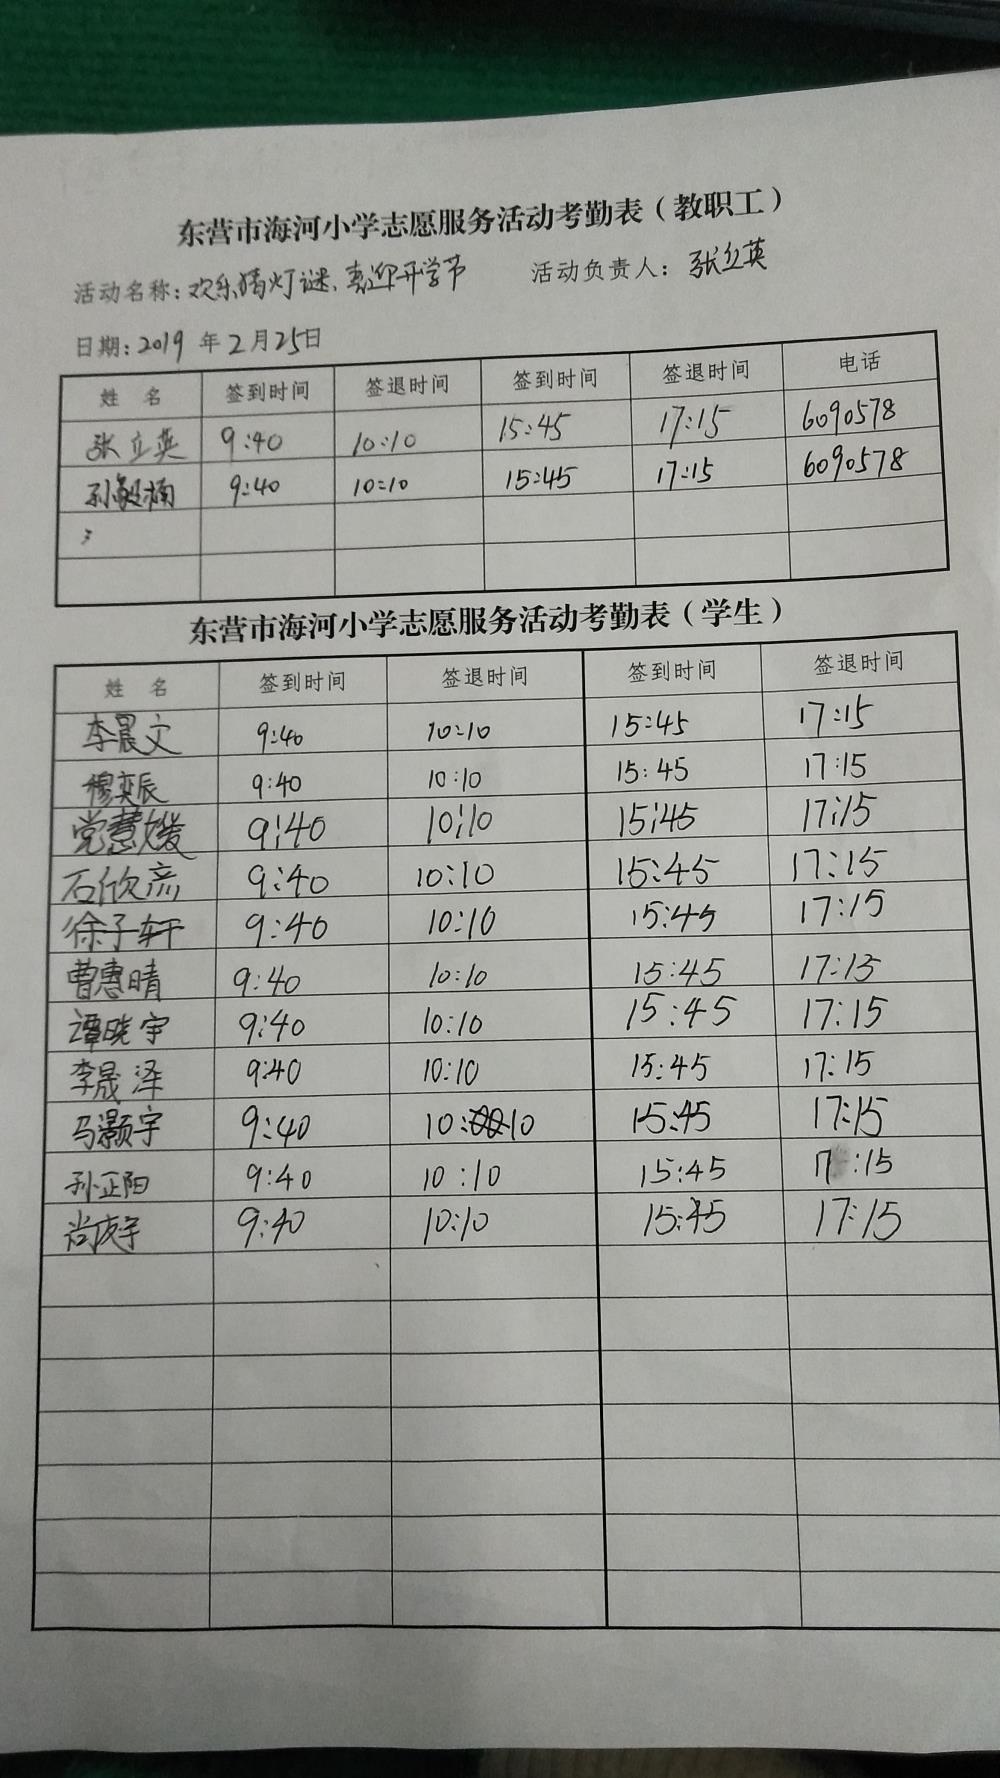 东营市海河小学志愿服务活动考勤表（教职工）
活动名称：欢乐猜灯谜、喜迎开学节 活动负责人：张立英
日期：2019 年 2 月 25 日
姓 名 签到时间 签退时间 签到时间 签退时间 电话
张立英 9:40 10:10 15:45 17:15 6090578
孙毅楠 9:40 10:10 15:45 17:15 6090578
东营市海河小学志愿服务活动考勤表（学生）
姓 名 签到时间 签退时间 签到时间 签退时间
李晨文 9:40 10:10 15:45 17:15
穆奕辰 9:40 10:10 15:45 17:15
党慧媛 9:40 10:10 15:45 17:15
石欣彦 9:40 10:10 15:45 17:15
徐子轩 9:40 10:10 15:45 17:15
曹惠晴 9:40 10:10 15:45 17:15
谭晓宇 9:40 10:10 15:45 17:15
李晟泽 9:40 10:10 15:45 17:15
马灏宇 9:40 10:10 15:45 17:15
孙正阳 9:40 10:10 15:45 17:15
9:40 10:10 15:45 17:15